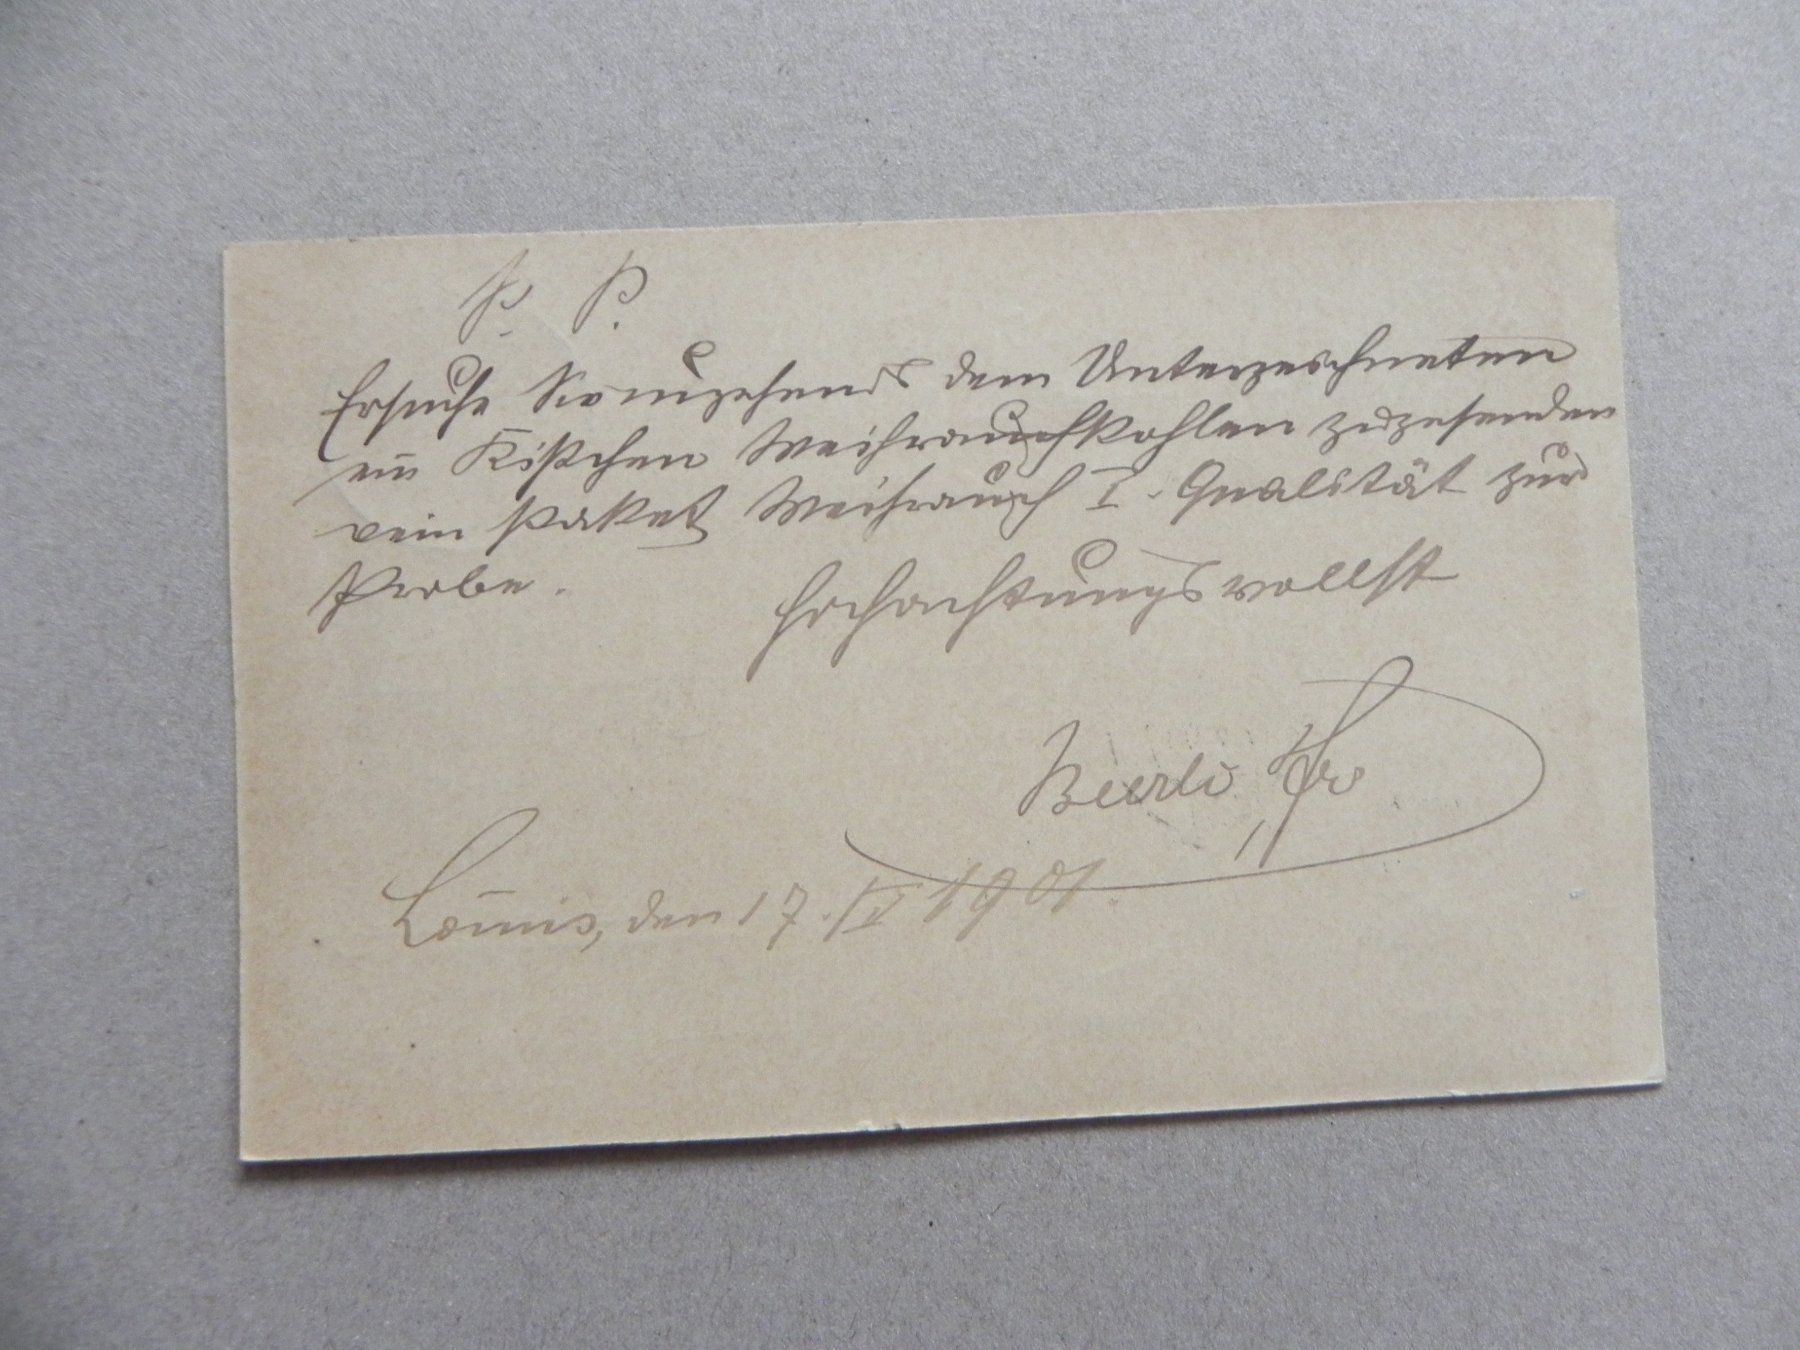 P. P.
Ersuche dem Unterzeichneten
ein Kistchen Weihrauchkohlen zuzusenden
ein Paket Weihrauch I. Qualität zur
Probe.
Hochachtungsvollst
den 17. IV 1901.